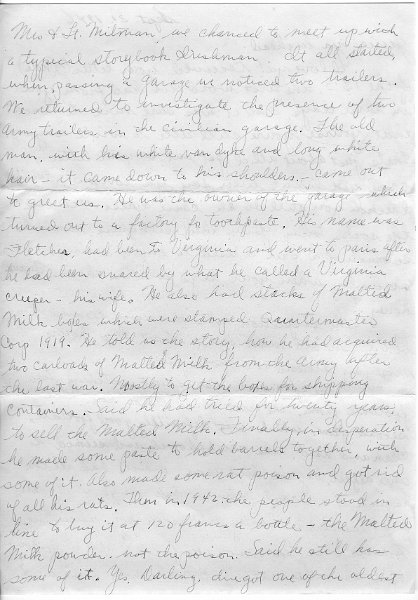 Mrs & Lt. Milman we chanced to meet up with
a typical storybook Irishman. It all started,
when passing a garage we noticed two trailers.
We returned to investigate the presence of two
Army trailers in the civilian garage. The old
man, with his white van dyke and long white
hair - it came down to his shoulders, - came out
to greet us. He was the owner of the "garage" which
turned out to a factory for toothpaste. His name was
Fletcher, had been to Virginia and went to paris after
he had been snared by what he called a Virginia
creeper - his wife. He also had stacks of Malted
Milk boxes which were stamped Quartermaster
Corp 1919. He told us the story, how he had acquired
two carloads of Malted Milk from the Army after
the last war. Mostly to get the boxes for shipping
containers. Said he had tried for twenty years,
to sell the Malted Milk. Finally, in desperation
he made some paste to hold barrels together, with
some of it. Also made some rat poison and got rid
of all his rats. Then in 1942 the people stood in
line to buy it at 120 francs a bottle - the Malted
Milk powder - not the poison. Said he still has
some of it. Yes, Darling, I've got one of the oldest